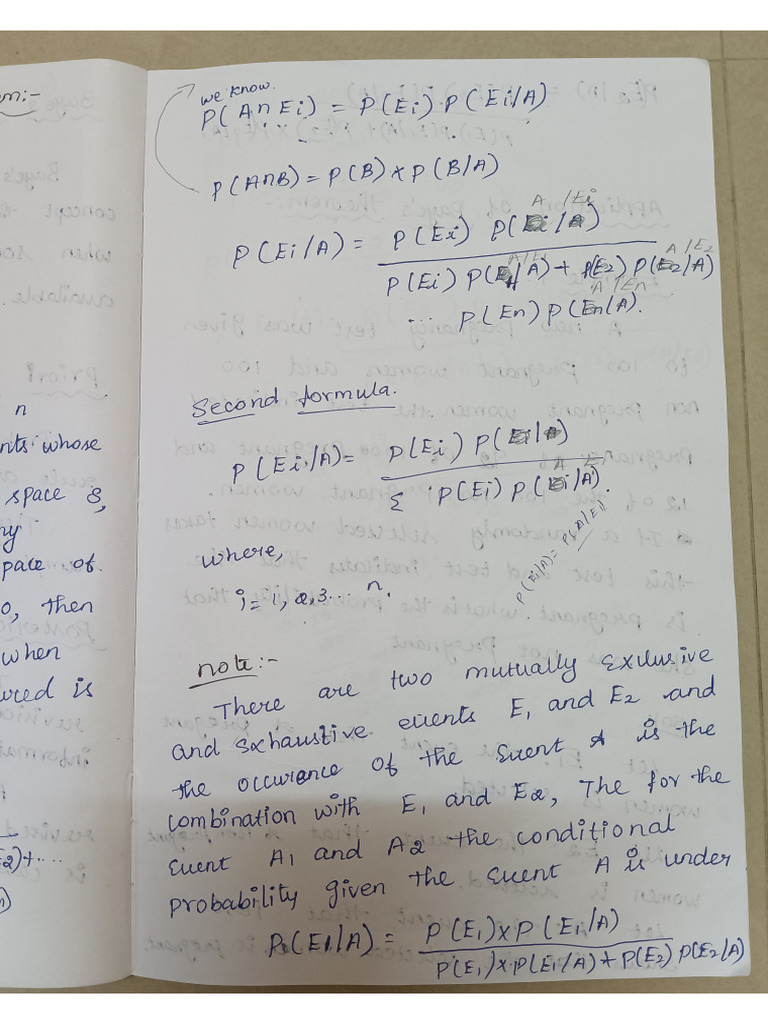 em:-
n
nts whose
space S,
ny
pace of
0, then
when
ured is
E2)+....
we know.
P(A∩Ei) = P(Ei) P(Ei/A)
P(A∩B) = P(B) × P(B/A)
P(Ei/A) = P(Ei) P(A/Ei)
P(Ei) P(A/Ei) + P(E2) P(A/E2)
... P(En) P(A/En).
Second formula.
P(Ei/A) = P(Ei) P(Ei/A)
Σ P(Ei) P(A/Ei).
P(Ei/A) = P(A/Ei)
where,
i = 1, 2, 3... n.
note:-
There are two mutually Exlusive
and Exhaustive events E1 and E2 and
the occurance of the Event A is the
combination with E1 and E2, The for the
Event A1 and A2 the conditional
probability given the Event A is under
P(E1/A) = P(E1)×P(E1/A)
P(E1)×P(E1/A)+P(E2) P(E2/A)